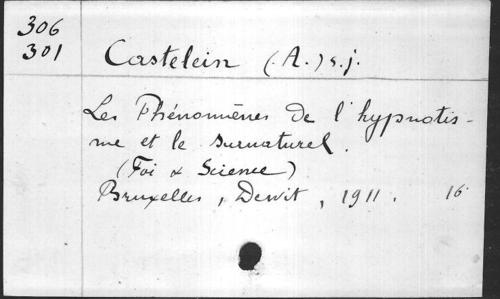 306
301
Castelein (A.) s.j.
Les Phénomènes de l'hypnotis-
me et le surnaturel.
(Foi & Science)
Bruxelles, Dewit, 1911. 16°